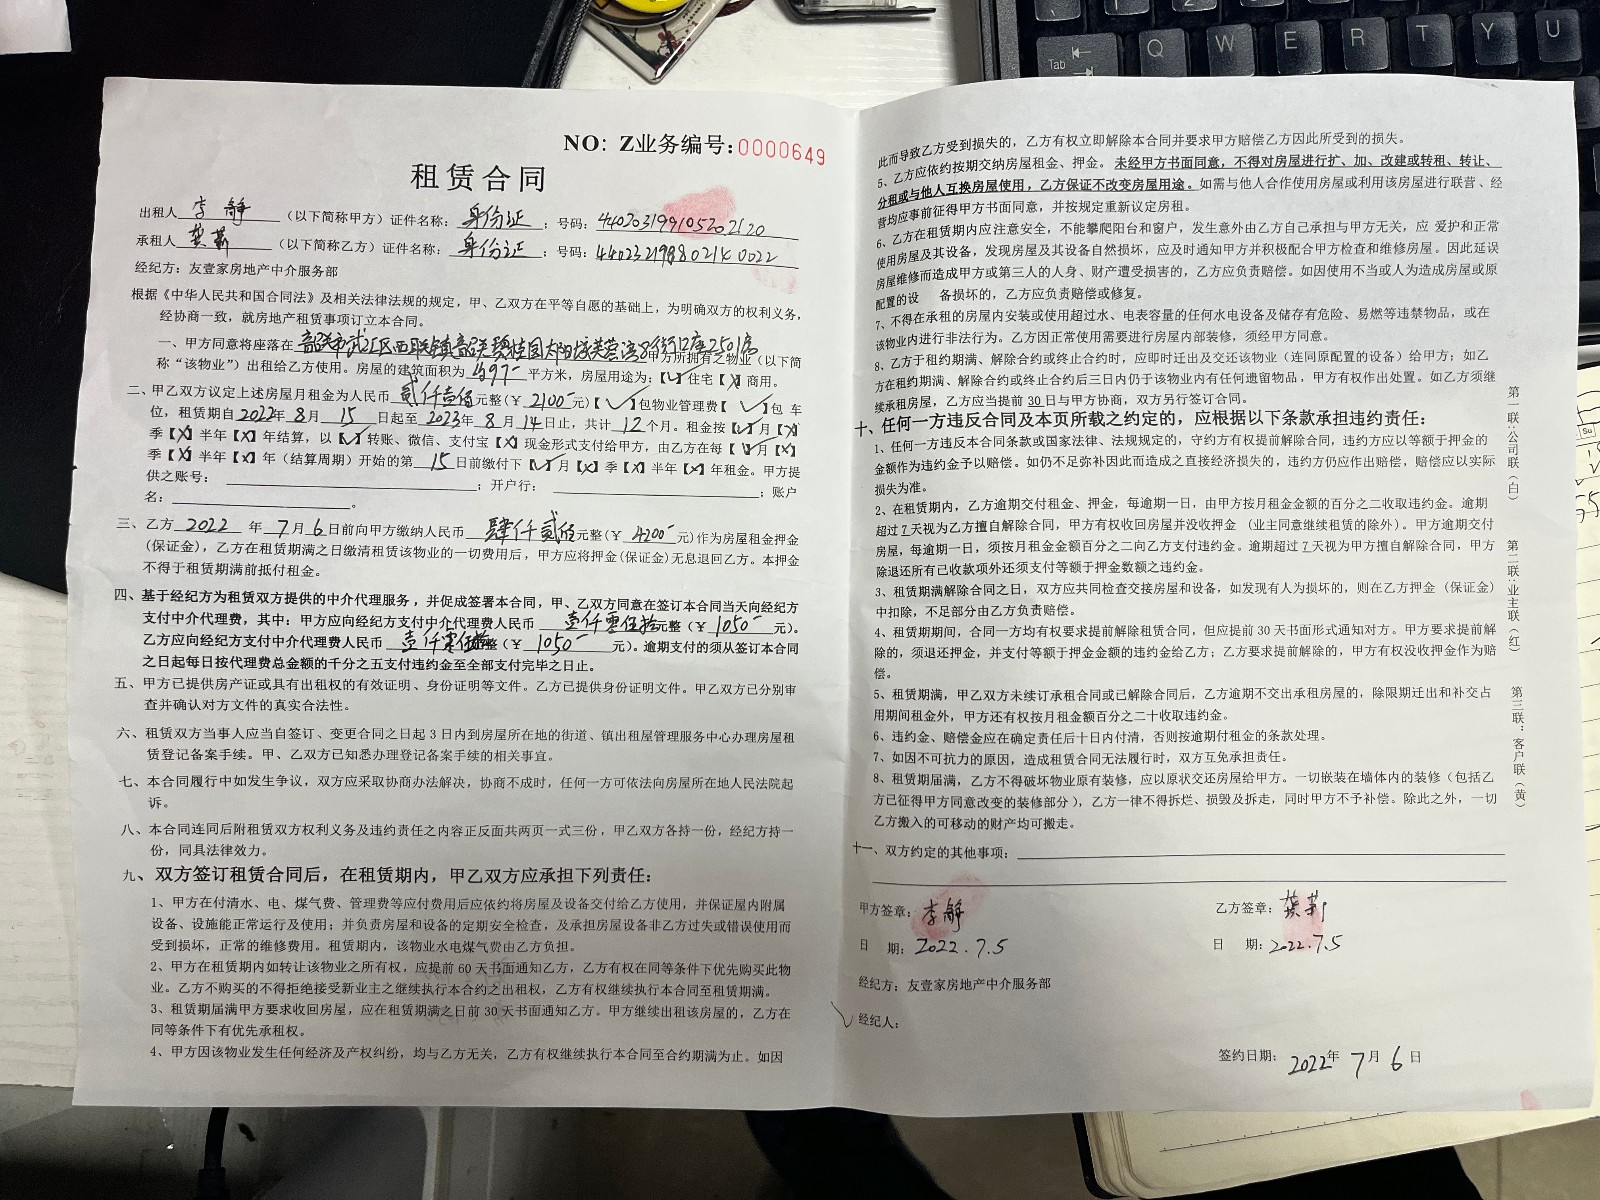 NO: Z业务编号:0000649
租赁合同
出租人 李静 （以下简称甲方）证件名称: 身份证 ；号码:
承租人 （以下简称乙方）证件名称: 身份证 ；号码:
经纪方：友壹家房地产中介服务部
根据《中华人民共和国合同法》及相关法律法规的规定，甲、乙双方在平等自愿的基础上，为明确双方的权利义务，
经协商一致，就房地产租赁事项订立本合同。
一、甲方同意将座落在 韶关市武江区西联镇韶关碧桂园太阳城芙蓉湾 街 座2501房 甲方所拥有之物业（以下简
称“该物业”）出租给乙方使用。房屋的建筑面积为 平方米，房屋用途为:【✓】住宅【X】商用。
二、甲乙双方议定上述房屋月租金为人民币 贰仟壹佰 元整(￥ 2100 元)【✓】包物业管理费【✓】包 车
位，租赁期自 2022年 8 月 15 日起至 2023年 8 月 14 日止，共计 12 个月。租金按【✓】月【X】
季【X】半年【X】年结算，以【✓】转账、微信、支付宝【X】现金形式支付给甲方，由乙方在每【✓】月【X】
季【X】半年【X】年（结算周期）开始的第 15 日前缴付下【✓】月【X】季【X】半年【X】年租金。甲方提
供之账号: ；开户行: ；账户
名: 。
三、乙方 2022 年 7 月 6 日前向甲方缴纳人民币 肆仟贰佰 元整(￥ 4200 元)作为房屋租金押金
(保证金)，乙方在租赁期满之日缴清租赁该物业的一切费用后，甲方应将押金(保证金)无息退回乙方。本押金
不得于租赁期满前抵付租金。
四、基于经纪方为租赁双方提供的中介代理服务，并促成签署本合同，甲、乙双方同意在签订本合同当天向经纪方
支付中介代理费，其中：甲方应向经纪方支付中介代理费人民币 壹仟零伍拾 元整（￥ 1050 元）。
乙方应向经纪方支付中介代理费人民币 壹仟零伍拾 整（￥ 1050 元）。逾期支付的须从签订本合同
之日起每日按代理费总金额的千分之五支付违约金至全部支付完毕之日止。
五、甲方已提供房产证或具有出租权的有效证明、身份证明等文件。乙方已提供身份证明文件。甲乙双方已分别审
查并确认对方文件的真实合法性。
六、租赁双方当事人应当自签订、变更合同之日起 3 日内到房屋所在地的街道、镇出租屋管理服务中心办理房屋租
赁登记备案手续。甲、乙双方已知悉办理登记备案手续的相关事宜。
七、本合同履行中如发生争议，双方应采取协商办法解决，协商不成时，任何一方可依法向房屋所在地人民法院起
诉。
八、本合同连同后附租赁双方权利义务及违约责任之内容正反面共两页一式三份，甲乙双方各持一份，经纪方持一
份，同具法律效力。
九、双方签订租赁合同后，在租赁期内，甲乙双方应承担下列责任：
1、甲方在付清水、电、煤气费、管理费等应付费用后应依约将房屋及设备交付给乙方使用，并保证屋内附属
设备、设施能正常运行及使用；并负责房屋和设备的定期安全检查，及承担房屋设备非乙方过失或错误使用而
受到损坏，正常的维修费用。租赁期内，该物业水电煤气费由乙方负担。
2、甲方在租赁期内如转让该物业之所有权，应提前 60 天书面通知乙方，乙方有权在同等条件下优先购买此物
业。乙方不购买的不得拒绝接受新业主之继续执行本合约之出租权，乙方有权继续执行本合同至租赁期满。
3、租赁期届满甲方要求收回房屋，应在租赁期满之日前 30 天书面通知乙方。甲方继续出租该房屋的，乙方在
同等条件下有优先承租权。
4、甲方因该物业发生任何经济及产权纠纷，均与乙方无关，乙方有权继续执行本合同至合约期满为止。如因
此而导致乙方受到损失的，乙方有权立即解除本合同并要求甲方赔偿乙方因此所受到的损失。
5、乙方应依约按期交纳房屋租金、押金。未经甲方书面同意，不得对房屋进行扩、加、改建或转租、转让、
分租或与他人互换房屋使用，乙方保证不改变房屋用途。如需与他人合作使用房屋或利用该房屋进行联营、经
营均应事前征得甲方书面同意，并按规定重新议定房租。
6、乙方在租赁期内应注意安全，不能攀爬阳台和窗户，发生意外由乙方自己承担与甲方无关，应 爱护和正常
使用房屋及其设备，发现房屋及其设备自然损坏，应及时通知甲方并积极配合甲方检查和维修房屋。因此延误
房屋维修而造成甲方或第三人的人身、财产遭受损害的，乙方应负责赔偿。如因使用不当或人为造成房屋或原
配置的设 备损坏的，乙方应负责赔偿或修复。
7、不得在承租的房屋内安装或使用超过水、电表容量的任何水电设备及储存有危险、易燃等违禁物品，或在
该物业内进行非法行为。乙方因正常使用需要进行房屋内部装修，须经甲方同意。
8、乙方于租约期满、解除合约或终止合约时，应即时迁出及交还该物业（连同原配置的设备）给甲方；如乙
方在租约期满、解除合约或终止合约后三日内仍于该物业内有任何遗留物品，甲方有权作出处置。如乙方须继
续承租房屋，乙方应当提前 30 日与甲方协商，双方另行签订合同。
十、任何一方违反合同及本页所载之约定的，应根据以下条款承担违约责任：
1、任何一方违反本合同条款或国家法律、法规规定的，守约方有权提前解除合同，违约方应以等额于押金的
金额作为违约金予以赔偿。如仍不足弥补因此而造成之直接经济损失的，违约方仍应作出赔偿，赔偿应以实际
损失为准。
2、在租赁期内，乙方逾期交付租金、押金，每逾期一日，由甲方按月租金金额的百分之二收取违约金。逾期
超过 7 天视为乙方擅自解除合同，甲方有权收回房屋并没收押金 （业主同意继续租赁的除外）。甲方逾期交付
房屋，每逾期一日，须按月租金金额百分之二向乙方支付违约金。逾期超过 7 天视为甲方擅自解除合同，甲方
除退还所有已收款项外还须支付等额于押金数额之违约金。
3、租赁期满解除合同之日，双方应共同检查交接房屋和设备，如发现有人为损坏的，则在乙方押金（保证金）
中扣除，不足部分由乙方负责赔偿。
4、租赁期期间，合同一方均有权要求提前解除租赁合同，但应提前 30 天书面形式通知对方。甲方要求提前解
除的，须退还押金，并支付等额于押金金额的违约金给乙方；乙方要求提前解除的，甲方有权没收押金作为赔
偿。
5、租赁期满，甲乙双方未续订承租合同或已解除合同后，乙方逾期不交出承租房屋的，除限期迁出和补交占
用期间租金外，甲方还有权按月租金额百分之二十收取违约金。
6、违约金、赔偿金应在确定责任后十日内付清，否则按逾期付租金的条款处理。
7、如因不可抗力的原因，造成租赁合同无法履行时，双方互免承担责任。
8、租赁期届满，乙方不得破坏物业原有装修，应以原状交还房屋给甲方。一切嵌装在墙体内的装修（包括乙
方已征得甲方同意改变的装修部分），乙方一律不得拆烂、损毁及拆走，同时甲方不予补偿。除此之外，一切
乙方搬入的可移动的财产均可搬走。
十一、双方约定的其他事项：
甲方签章：李静
乙方签章：
日 期：2022.7.5
日 期：2022.7.5
经纪方：友壹家房地产中介服务部
经纪人：
签约日期： 2022年 7 月 6 日
第一联：公司联（白）
第二联：业主联（红）
第三联：客户联（黄）
Tab Q W E R T Y U